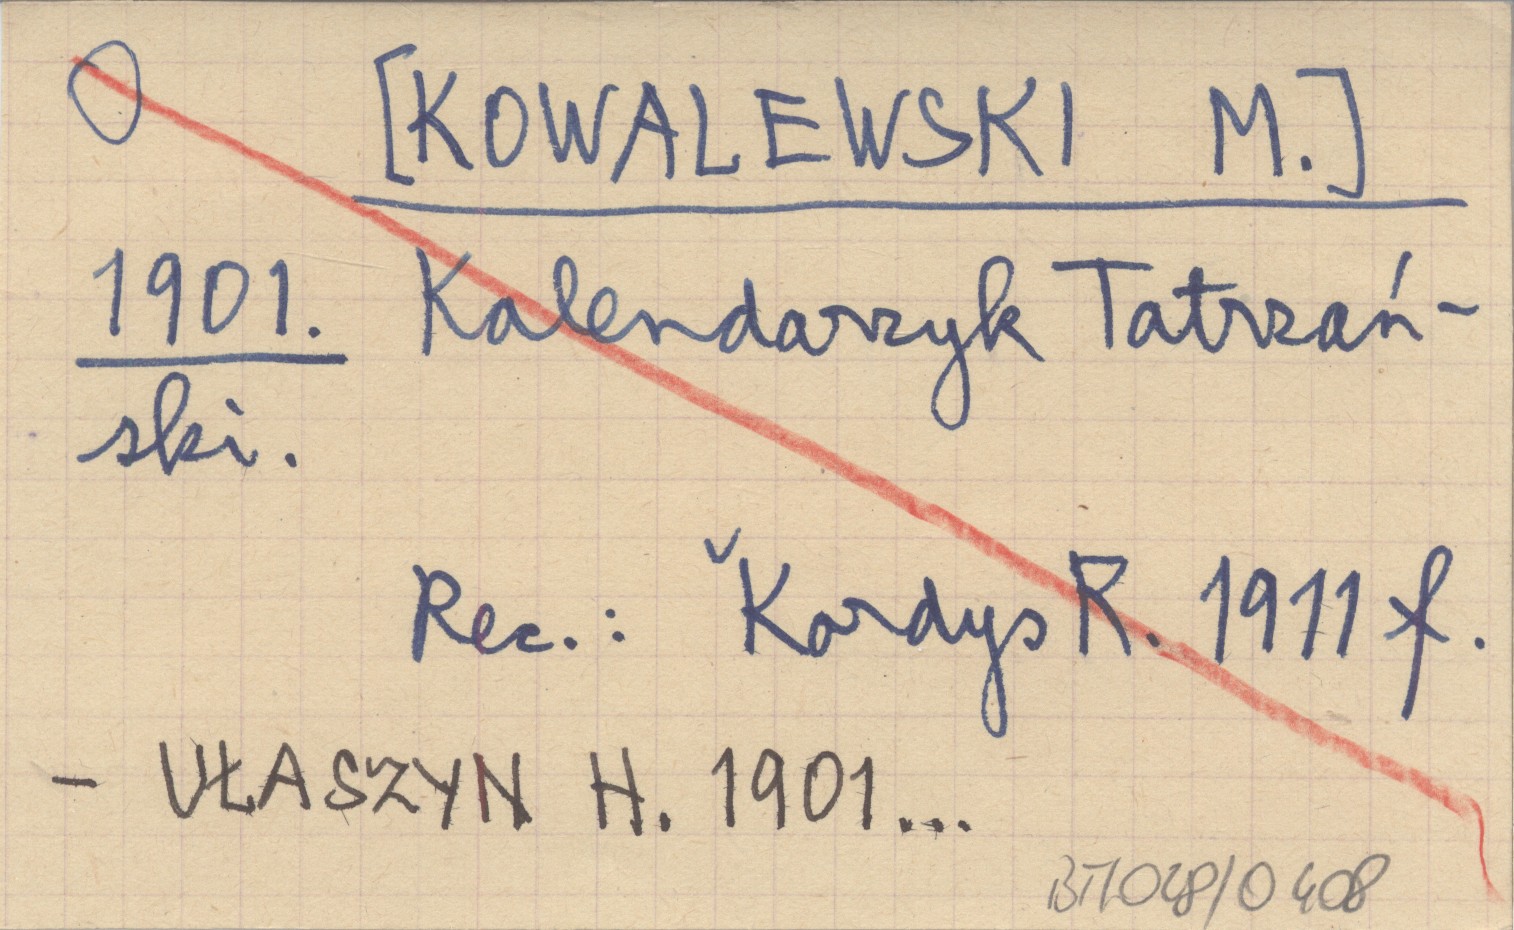 [KOWALEWSKI M.]
1901. Kalendarzyk Tatrzań-
ski.
Rec.: ˇKordys R. 1911 f.
- UŁASZYN H. 1901...
BTL048/0408